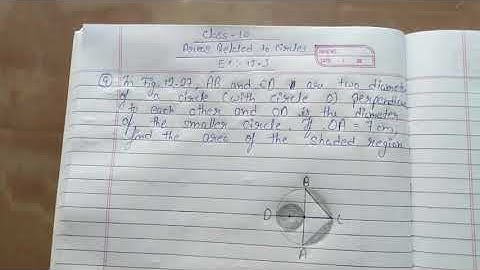 Class - 10
Areas Related to Circles
Ex :- 12.3
9 In Fig. 12.27, AB and CD are two diameters
of a circle (with circle O) perpendicular
to each other and OD is the diameter
of the smaller circle. If OA = 7 cm,
find the area of the shaded region
B
D
C
A